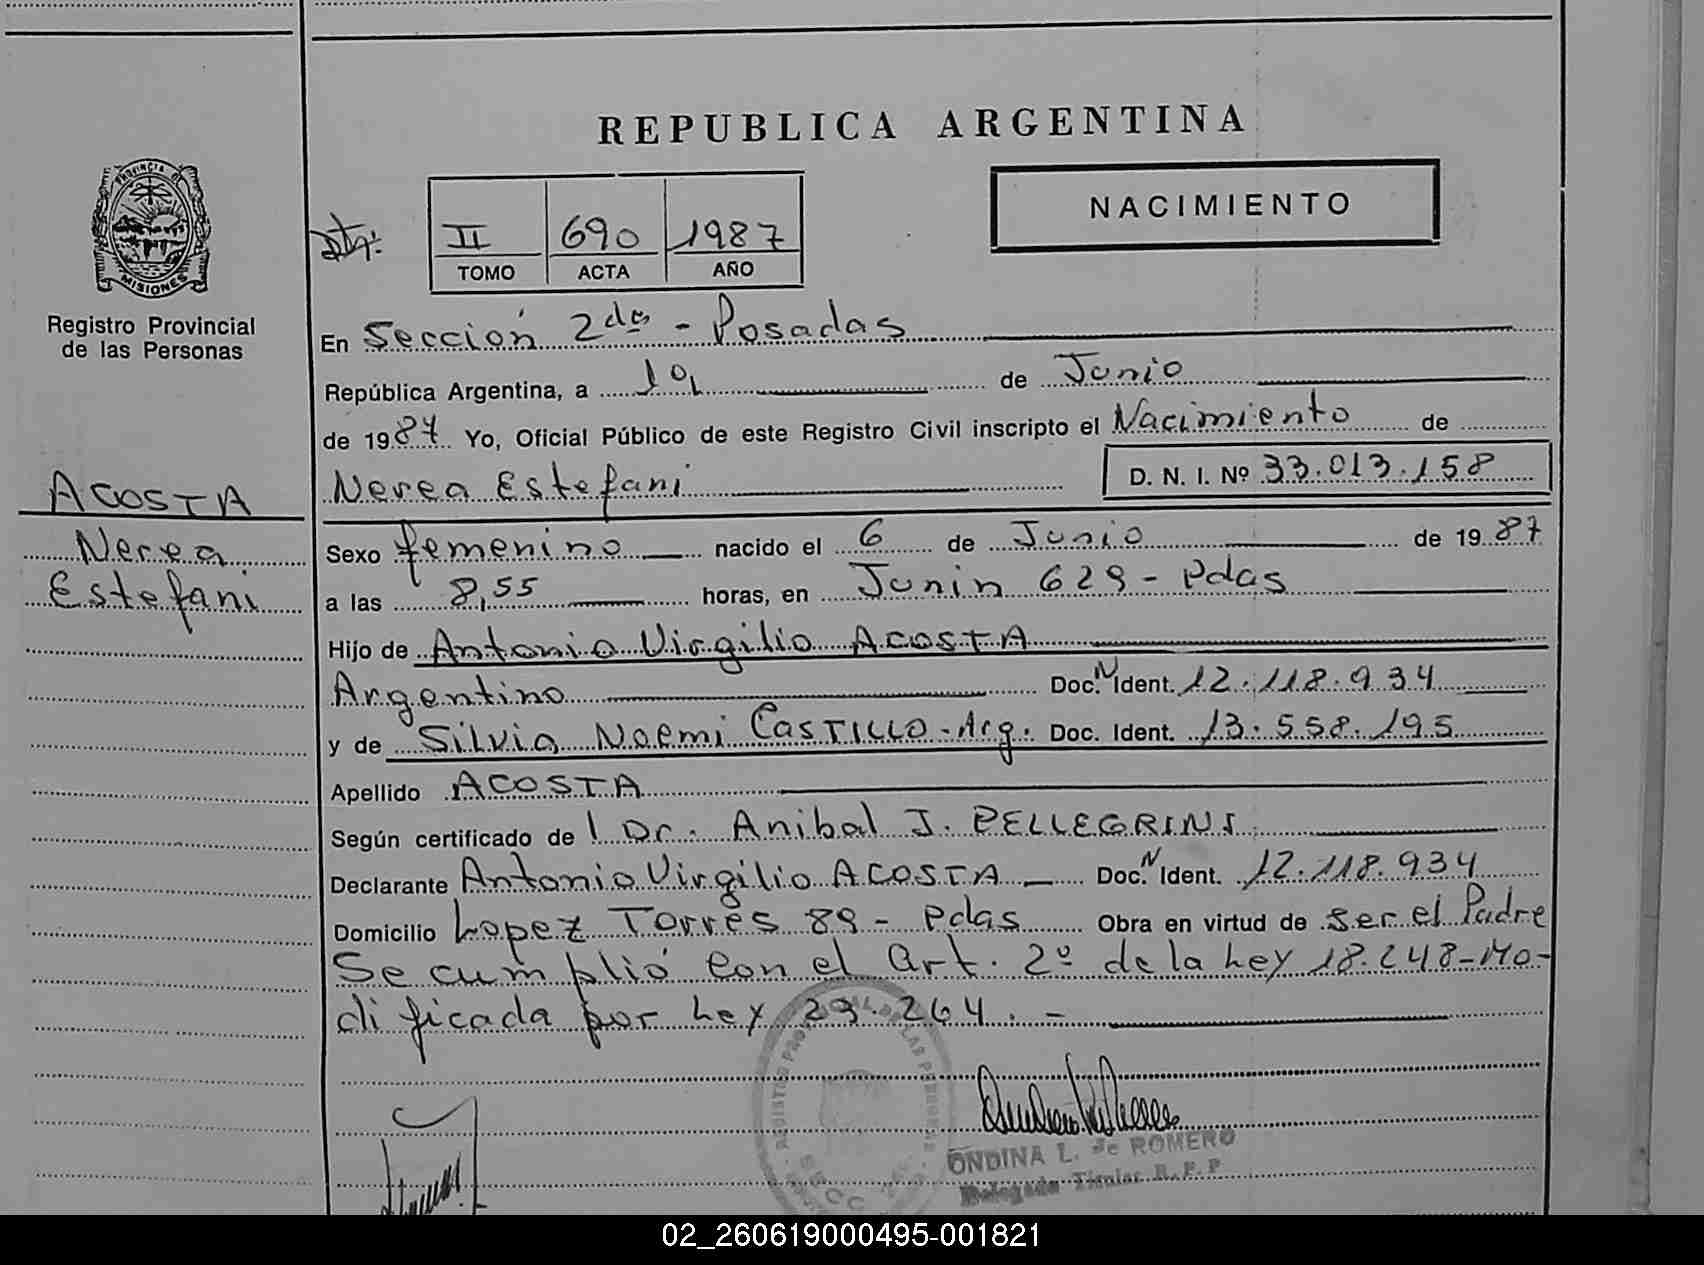 REPUBLICA ARGENTINA
NACIMIENTO
PROVINCIA DE
MISIONES
Registro Provincial
de las Personas
II 690 1987
TOMO ACTA AÑO
En Sección 2da - Posadas
República Argentina, a de Junio
de 1987 Yo, Oficial Público de este Registro Civil inscripto el Nacimiento de
Nerea Estefani D. N. I. Nº 33.013.158
ACOSTA
Nerea
Estefani
Sexo femenino nacido el 6 de Junio de 1987
a las 8,55 horas, en Junin 629 - Pdas
Hijo de Antonio Virgilio ACOSTA
Argentino Doc. N Ident. 12.118.934
y de Silvia Noemi CASTILLO - Arg. Doc. Ident. 13.558.195
Apellido ACOSTA
Según certificado de l Dr. Anibal J. PELLEGRINI
Declarante Antonio Virgilio ACOSTA Doc. N Ident. 12.118.934
Domicilio Lopez Torres 89 - Pdas Obra en virtud de ser el Padre
Se cumplió con el Art. 2º de la Ley 18.248 - Mo-
dificada por Ley 23.264. -
ONDINA L. de ROMERO
Delegada Titular R. P. P.
02_260619000495-001821